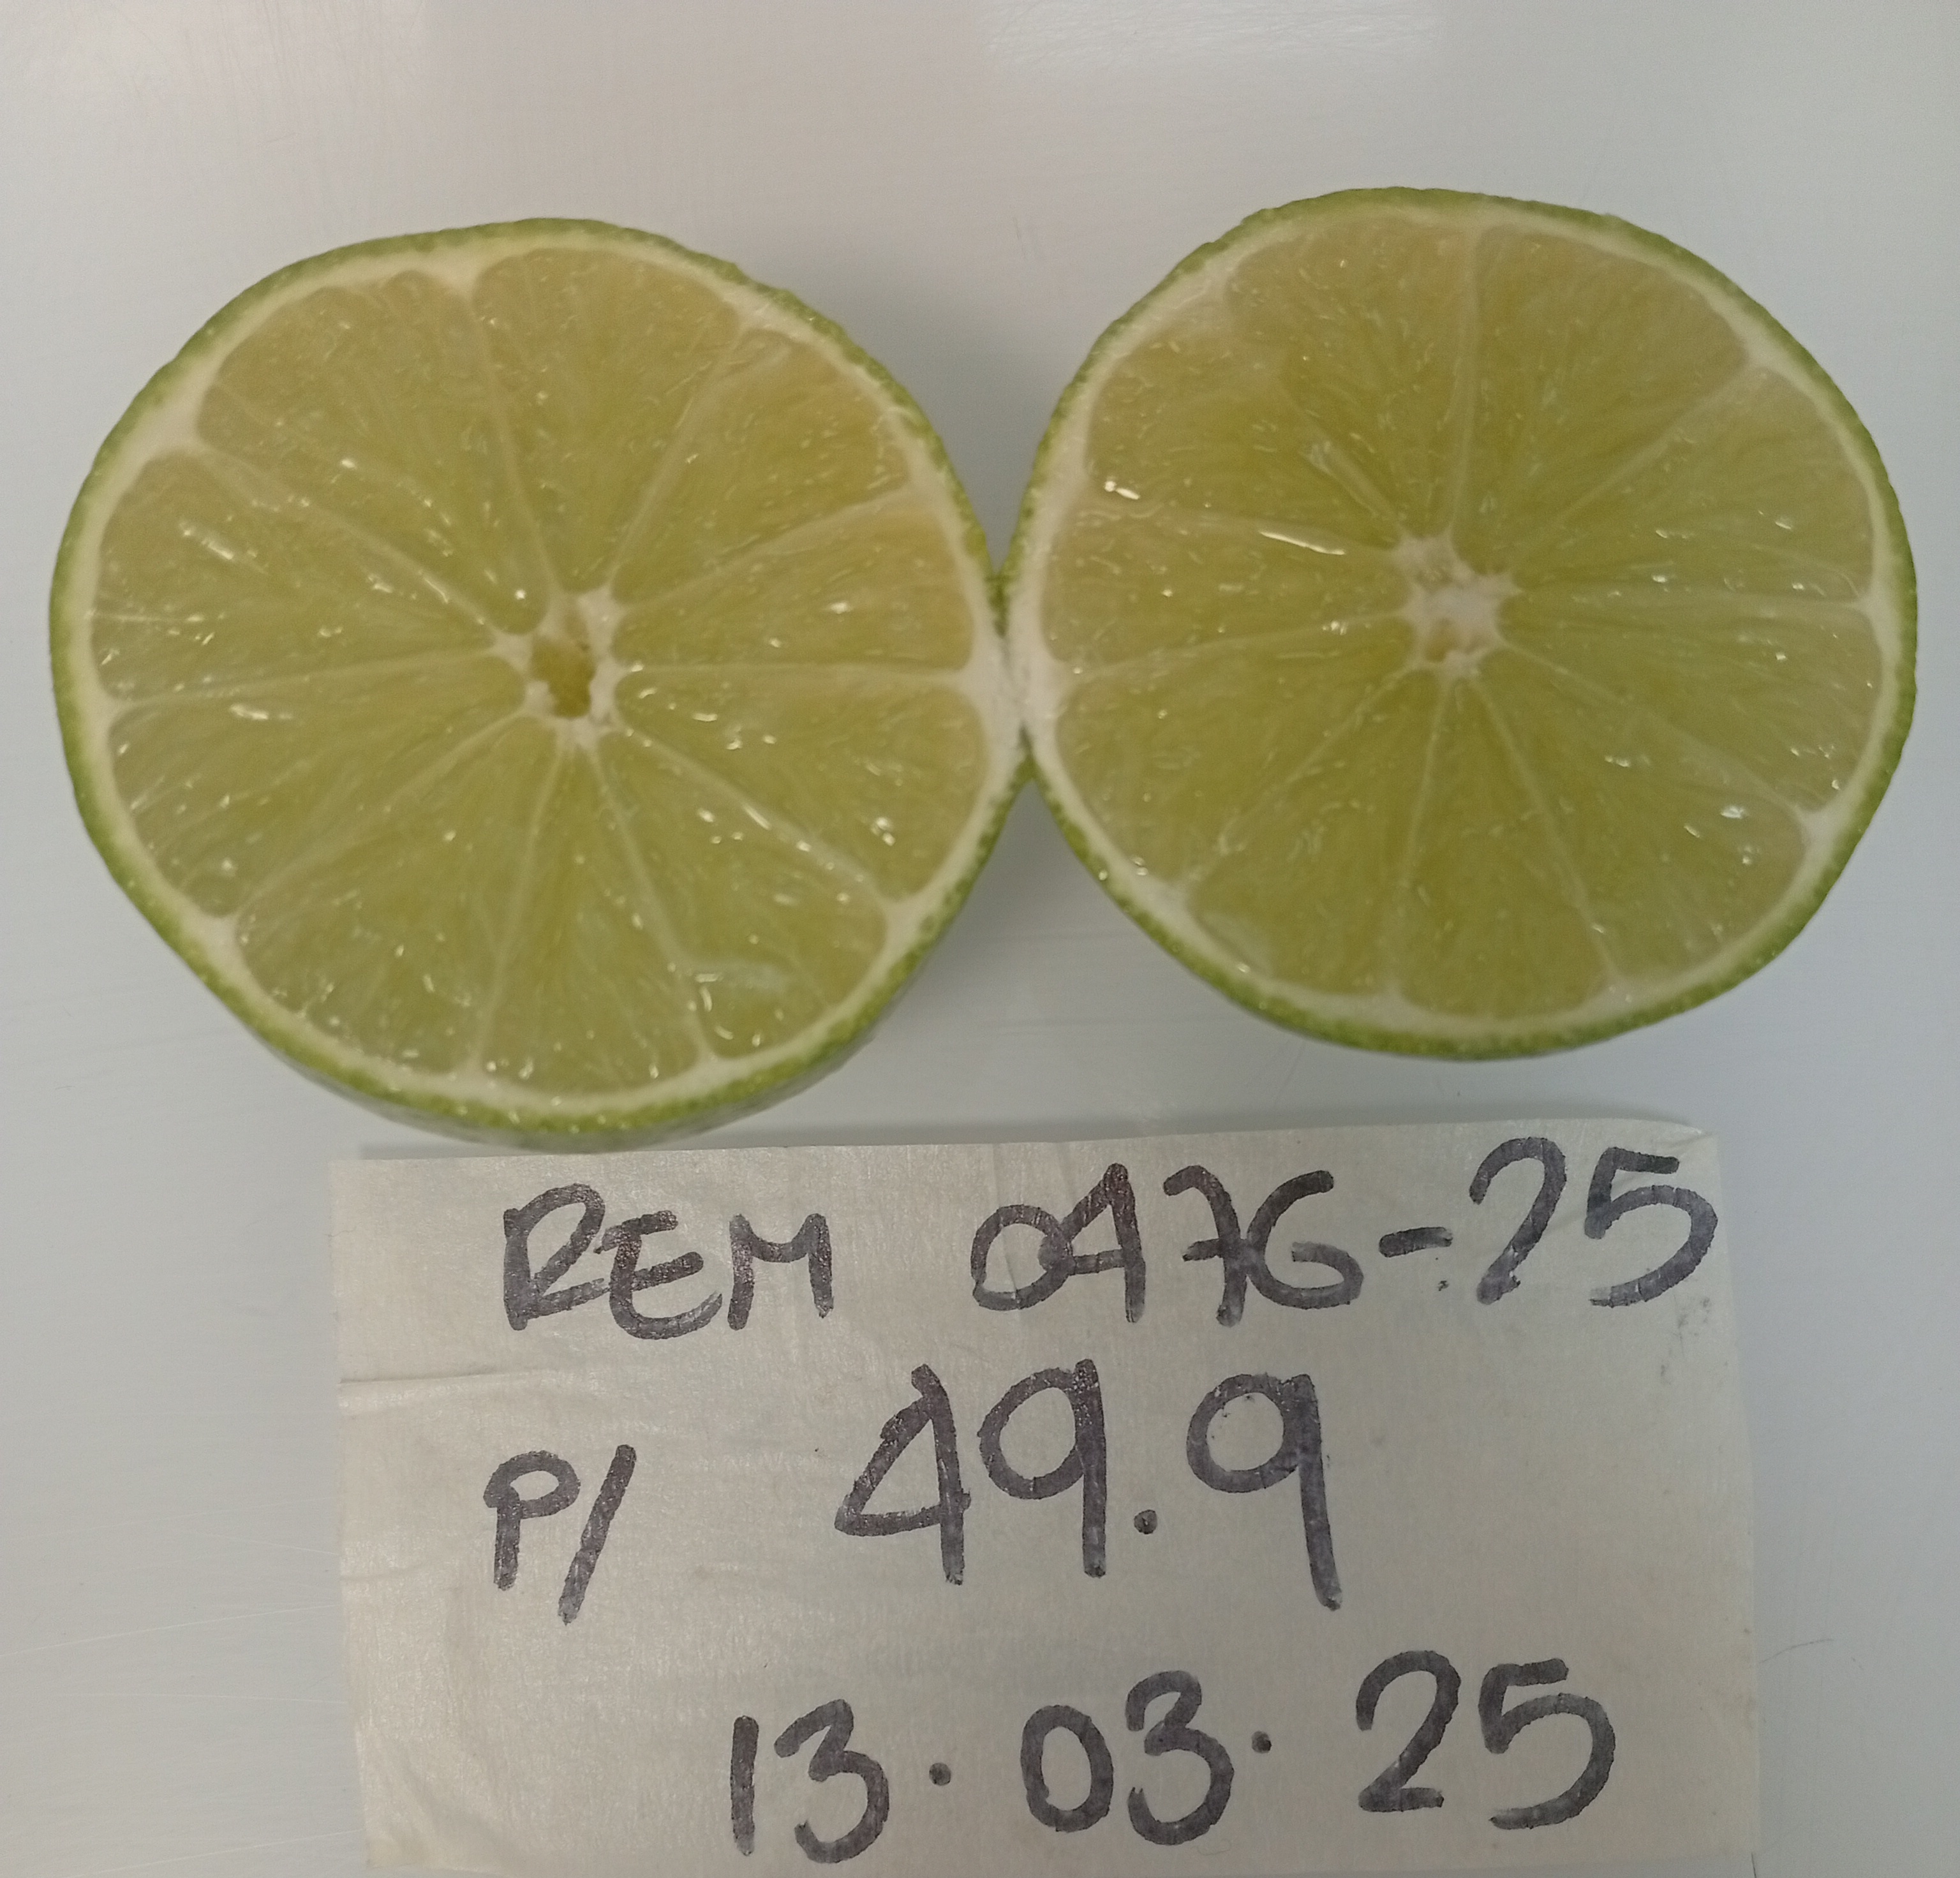 REM 0476-25
P/ 49.9
13.03.25